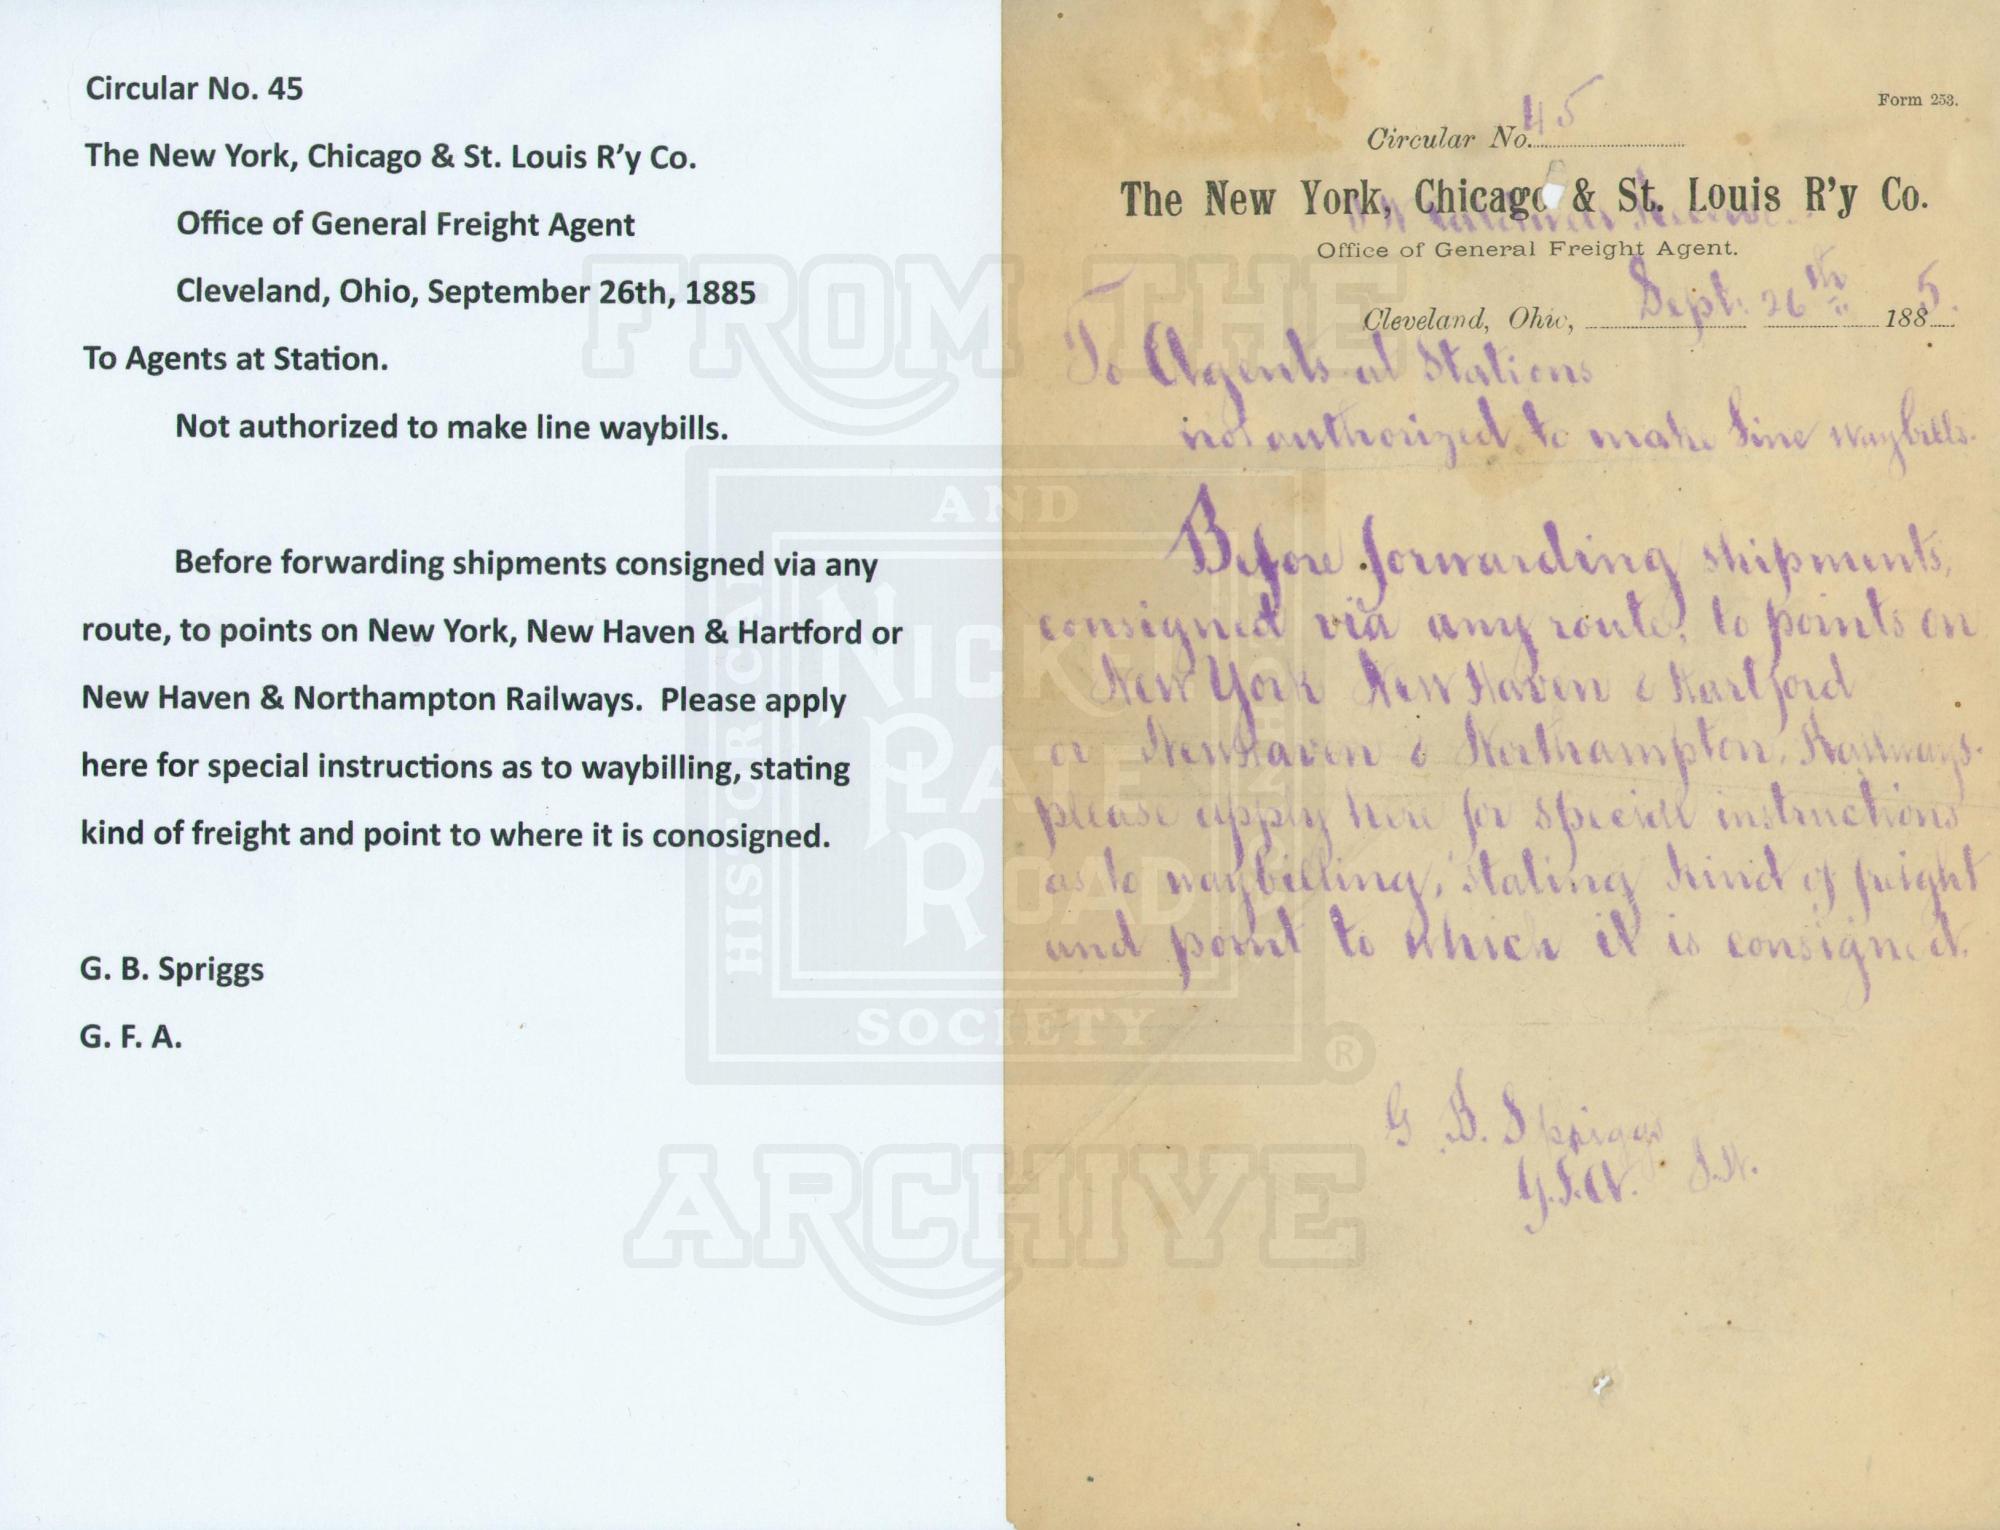 Circular No. 45
The New York, Chicago & St. Louis R’y Co.
Office of General Freight Agent
Cleveland, Ohio, September 26th, 1885
To Agents at Station.
Not authorized to make line waybills.
Before forwarding shipments consigned via any
route, to points on New York, New Haven & Hartford or
New Haven & Northampton Railways.  Please apply
here for special instructions as to waybilling, stating
kind of freight and point to where it is conosigned.
G. B. Spriggs
G. F. A.
Form 253.
Circular No. 45
The New York, Chicago & St. Louis R’y Co.
Office of General Freight Agent.
Cleveland, Ohio, Sept. 26th 1885.
To Agents at Stations
not authorized to make Line waybills.
Before forwarding shipments,
consigned via any route, to points on
New York New Haven & Hartford
or New Haven & Northampton, Railways.
please apply here for special instructions
as to waybilling, stating kind of freight
and point to which it is consigned.
G B. Spriggs
G.F.A.
FROM THE
AND
HISTORICAL
NICKEL
PLATE
ROAD
TECHNICAL
SOCIETY
®
ARCHIVE